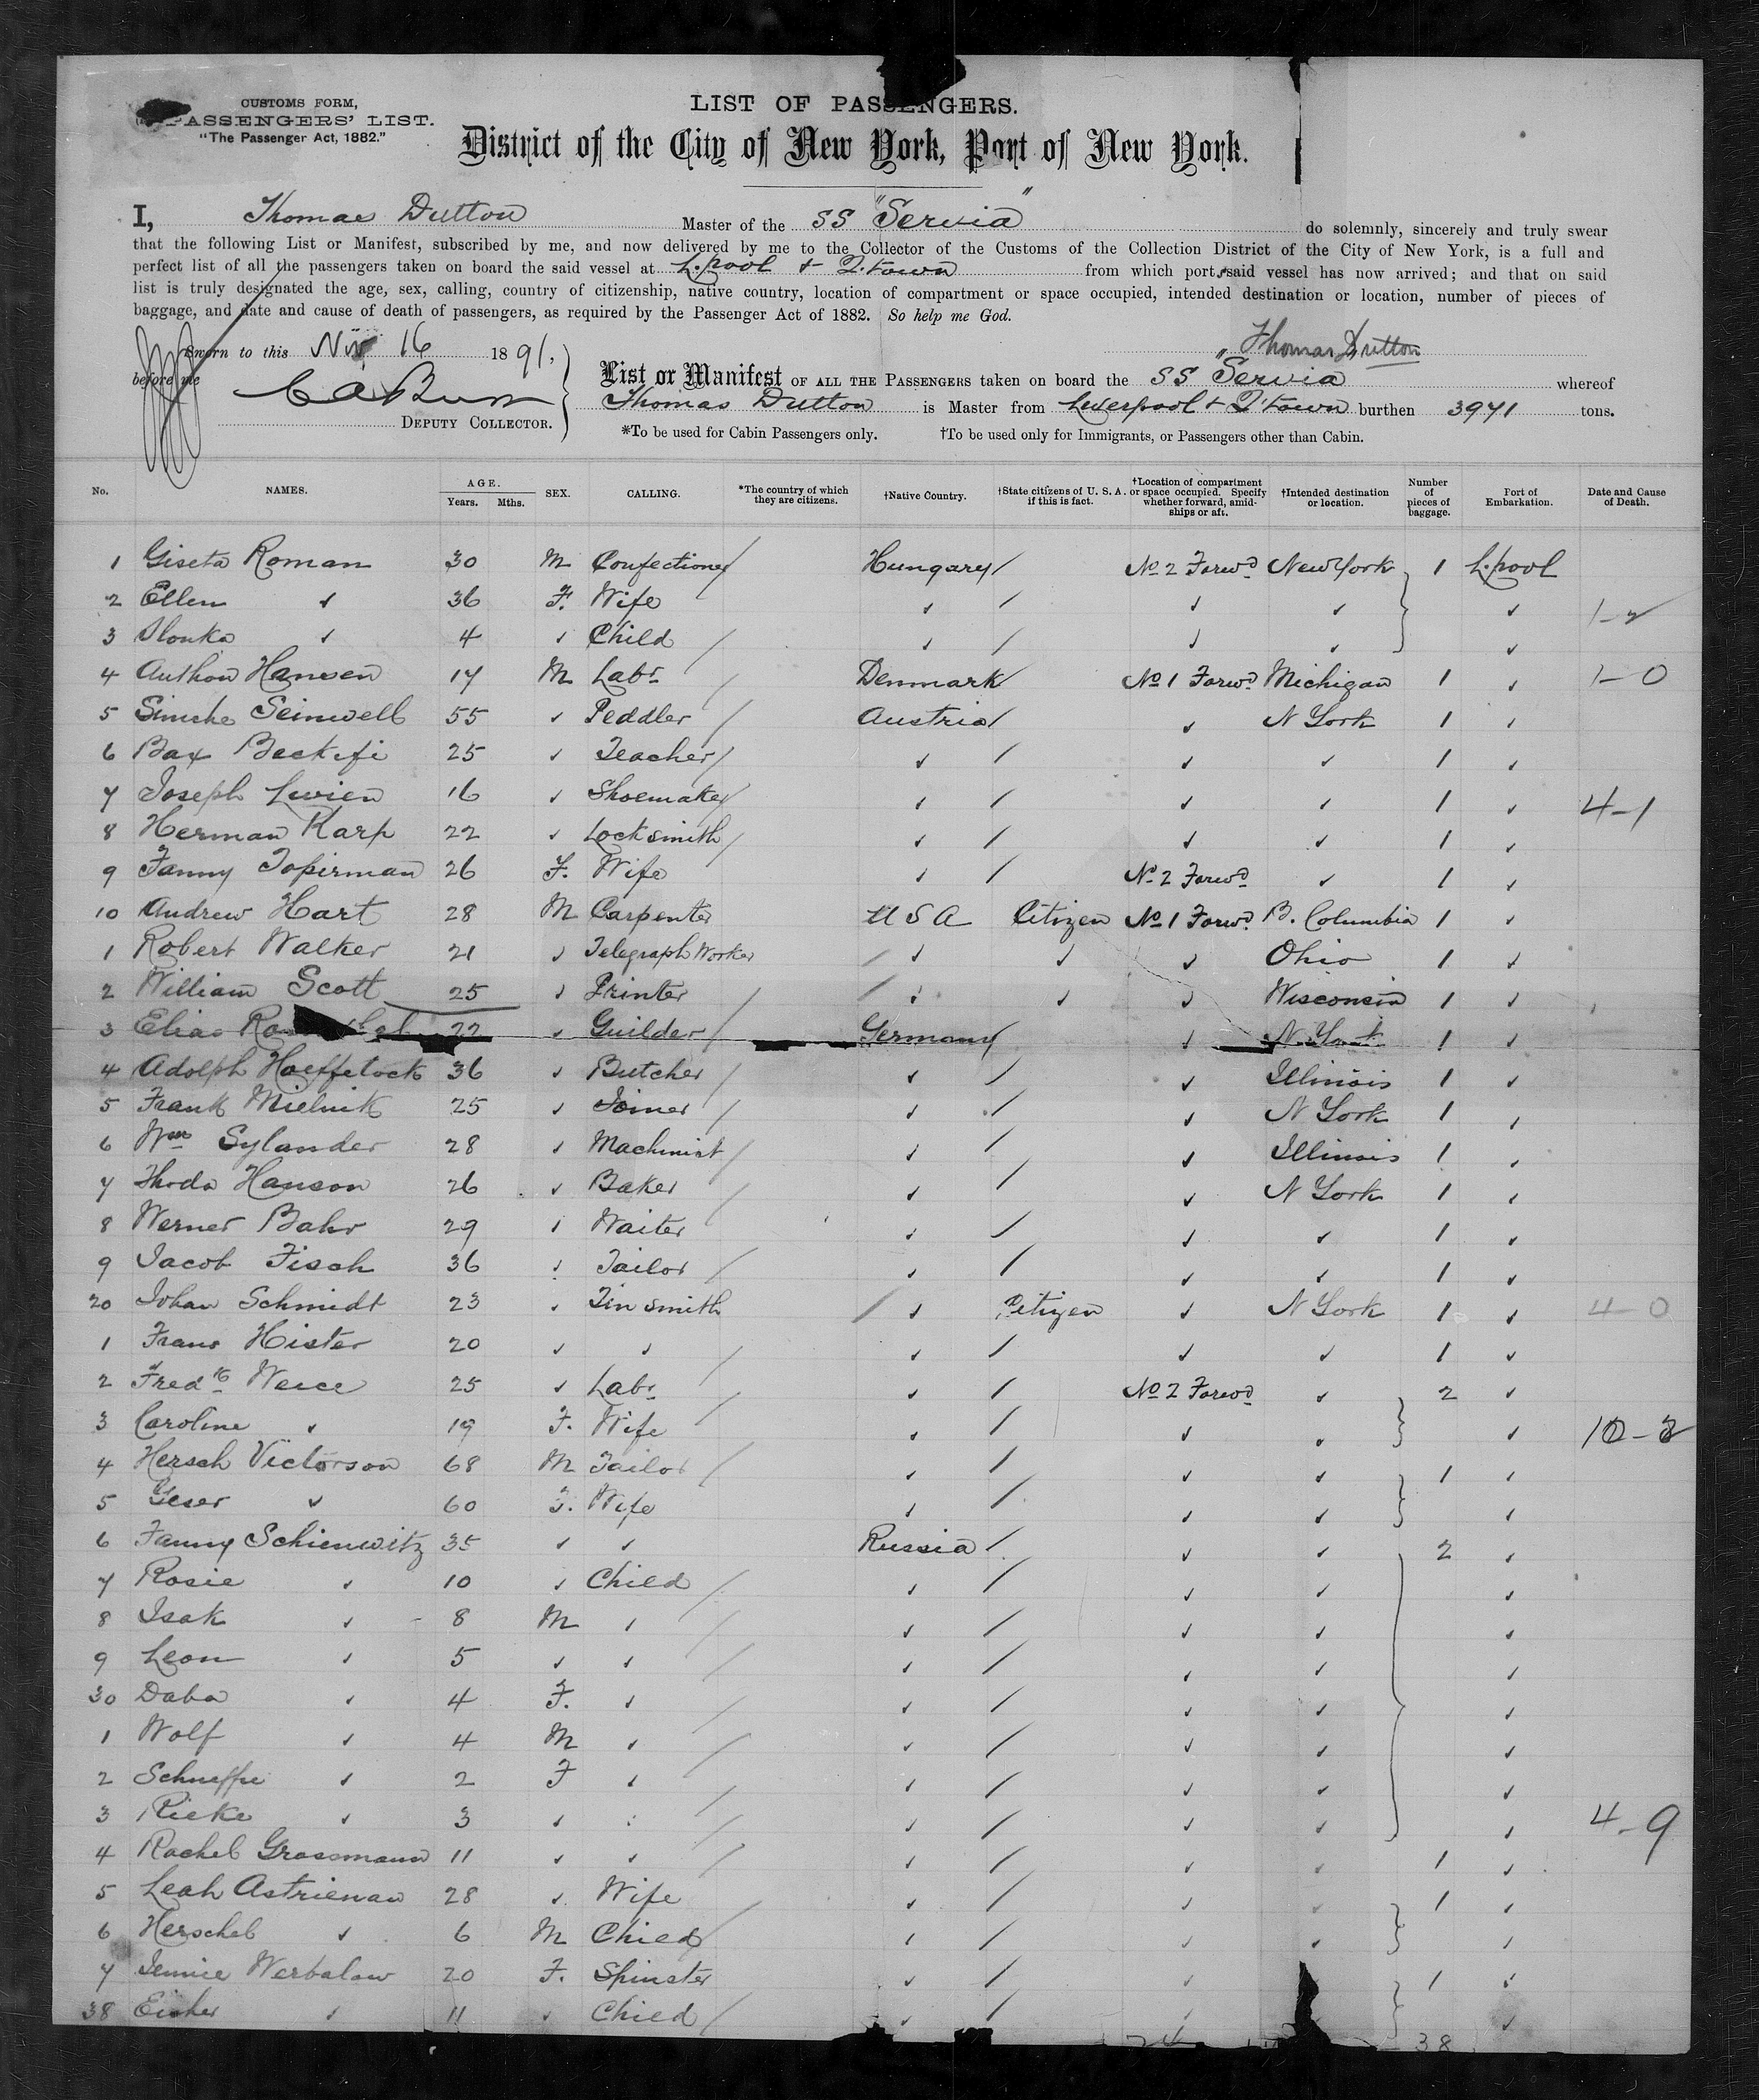 CUSTOMS FORM,
PASSENGERS' LIST.
"The Passenger Act, 1882."
LIST OF PASSENGERS.
District of the City of New York, Port of New York.
I, Thomas Dutton Master of the SS "Servia" do solemnly, sincerely and truly swear
that the following List or Manifest, subscribed by me, and now delivered by me to the Collector of the Customs of the Collection District of the City of New York, is a full and
perfect list of all the passengers taken on board the said vessel at L.pool & Q.town from which port, said vessel has now arrived; and that on said
list is truly designated the age, sex, calling, country of citizenship, native country, location of compartment or space occupied, intended destination or location, number of pieces of
baggage, and date and cause of death of passengers, as required by the Passenger Act of 1882. So help me God.
Sworn to this Nov 16 1891.
Thomas Dutton
before me
DEPUTY COLLECTOR.
List or Manifest OF ALL THE PASSENGERS taken on board the SS "Servia whereof
Thomas Dutton is Master from Liverpool & Q'town burthen 3971 tons.
*To be used for Cabin Passengers only. †To be used only for Immigrants, or Passengers other than Cabin.
No. NAMES. AGE. Years. Mths. SEX. CALLING. *The country of which they are citizens. †Native Country. †State citizens of U. S. A. if this is fact. †Location of compartment or space occupied. Specify whether forward, amidships or aft. †Intended destination or location. Number of pieces of baggage. Port of Embarkation. Date and Cause of Death.
1 Giseta Roman 30 M Confectioner / Hungary / No 2 Forwd New York 1 L.pool
2 Ellen ✓ 36 F. Wife ✓ / ✓ ✓ ✓
3 Ilonka ✓ 4 ✓ Child / ✓ / ✓ ✓ ✓
4 Anthon Hansen 17 M Labr / Denmark / No 1 Forwd Michigan 1 ✓ 1-0
5 Simche Seinwell 55 ✓ Peddler / Austria / ✓ N York 1 ✓
6 Bax 25 ✓ Teacher / ✓ / ✓ ✓ 1 ✓
7 Joseph 16 ✓ Shoemaker / ✓ / ✓ ✓ 1 ✓ 4-1
8 Herman Karp 22 ✓ Locksmith / ✓ / ✓ ✓ 1 ✓
9 Fanny Topirman 26 F. Wife ✓ / No 2 Forwd ✓ 1 ✓
10 Andrew Hart 28 M Carpenter U S A Citizen No 1 Forwd B. Columbia 1 ✓
1 Robert Walker 21 ✓ Telegraph Worker / ✓ ✓ ✓ Ohio 1 ✓
2 William Scott 25 ✓ Printer / / ✓ ✓ ✓ Wisconsin 1 ✓
3 Elias 22 ✓ Guilder / Germany / ✓ N York 1 ✓
4 Adolph Hoeffelock 36 ✓ Butcher / ✓ / ✓ Illinois 1 ✓
5 Frank Mielnik 25 ✓ Joiner / ✓ / ✓ N York 1 ✓
6 Wm Sylander 28 ✓ Machinist / ✓ / ✓ Illinois 1 ✓
7 Thoda Hanson 26 ✓ Baker / ✓ / ✓ N York 1 ✓
8 Werner Bahr 29 ✓ Waiter ✓ / ✓ ✓ 1 ✓
9 Jacob Fisch 36 ✓ Tailor / ✓ / ✓ ✓ 1 ✓
20 Johan Schmidt 23 ✓ Tin smith / ✓ Citizen ✓ N York 1 ✓ 4-0
1 Frans Hister 20 ✓ ✓ / ✓ / ✓ ✓ 1 ✓
2 Fredk Weice 25 ✓ Labr / ✓ / No 2 Forwd ✓ 2 ✓
3 Caroline ✓ 19 F. Wife ✓ / ✓ ✓ ✓
4 Hersch Victorson 68 M Tailor / ✓ / ✓ ✓ 1 ✓
5 Geser ✓ 60 F. Wife ✓ / ✓ ✓ ✓
6 Fanny Schienwitz 35 ✓ ✓ Russia / ✓ ✓ 2 ✓
7 Rosie ✓ 10 ✓ Child / ✓ / ✓ ✓ ✓
8 Isak ✓ 8 M ✓ / ✓ / ✓ ✓ ✓
9 Leon ✓ 5 ✓ ✓ / ✓ / ✓ ✓ ✓
30 Daba ✓ 4 F. ✓ / ✓ / ✓ ✓ ✓
1 Wolf ✓ 4 M ✓ / ✓ / ✓ ✓ ✓
2 Schneffe ✓ 2 F ✓ / ✓ / ✓ ✓ ✓
3 Rieke ✓ 3 ✓ ✓ / ✓ / ✓ ✓ ✓ 4-9
4 Rachel Grossmann 11 ✓ ✓ / ✓ / ✓ ✓ 1 ✓
5 Leah Astrienan 28 ✓ Wife ✓ / ✓ ✓ 1 ✓
6 Herschel ✓ 6 M Child / ✓ / ✓ ✓ ✓
7 Jennie Werbalow 20 F. Spinster ✓ / ✓ 1 ✓
38 Eisher ✓ 11 ✓ Child / ✓ / ✓ ✓
38